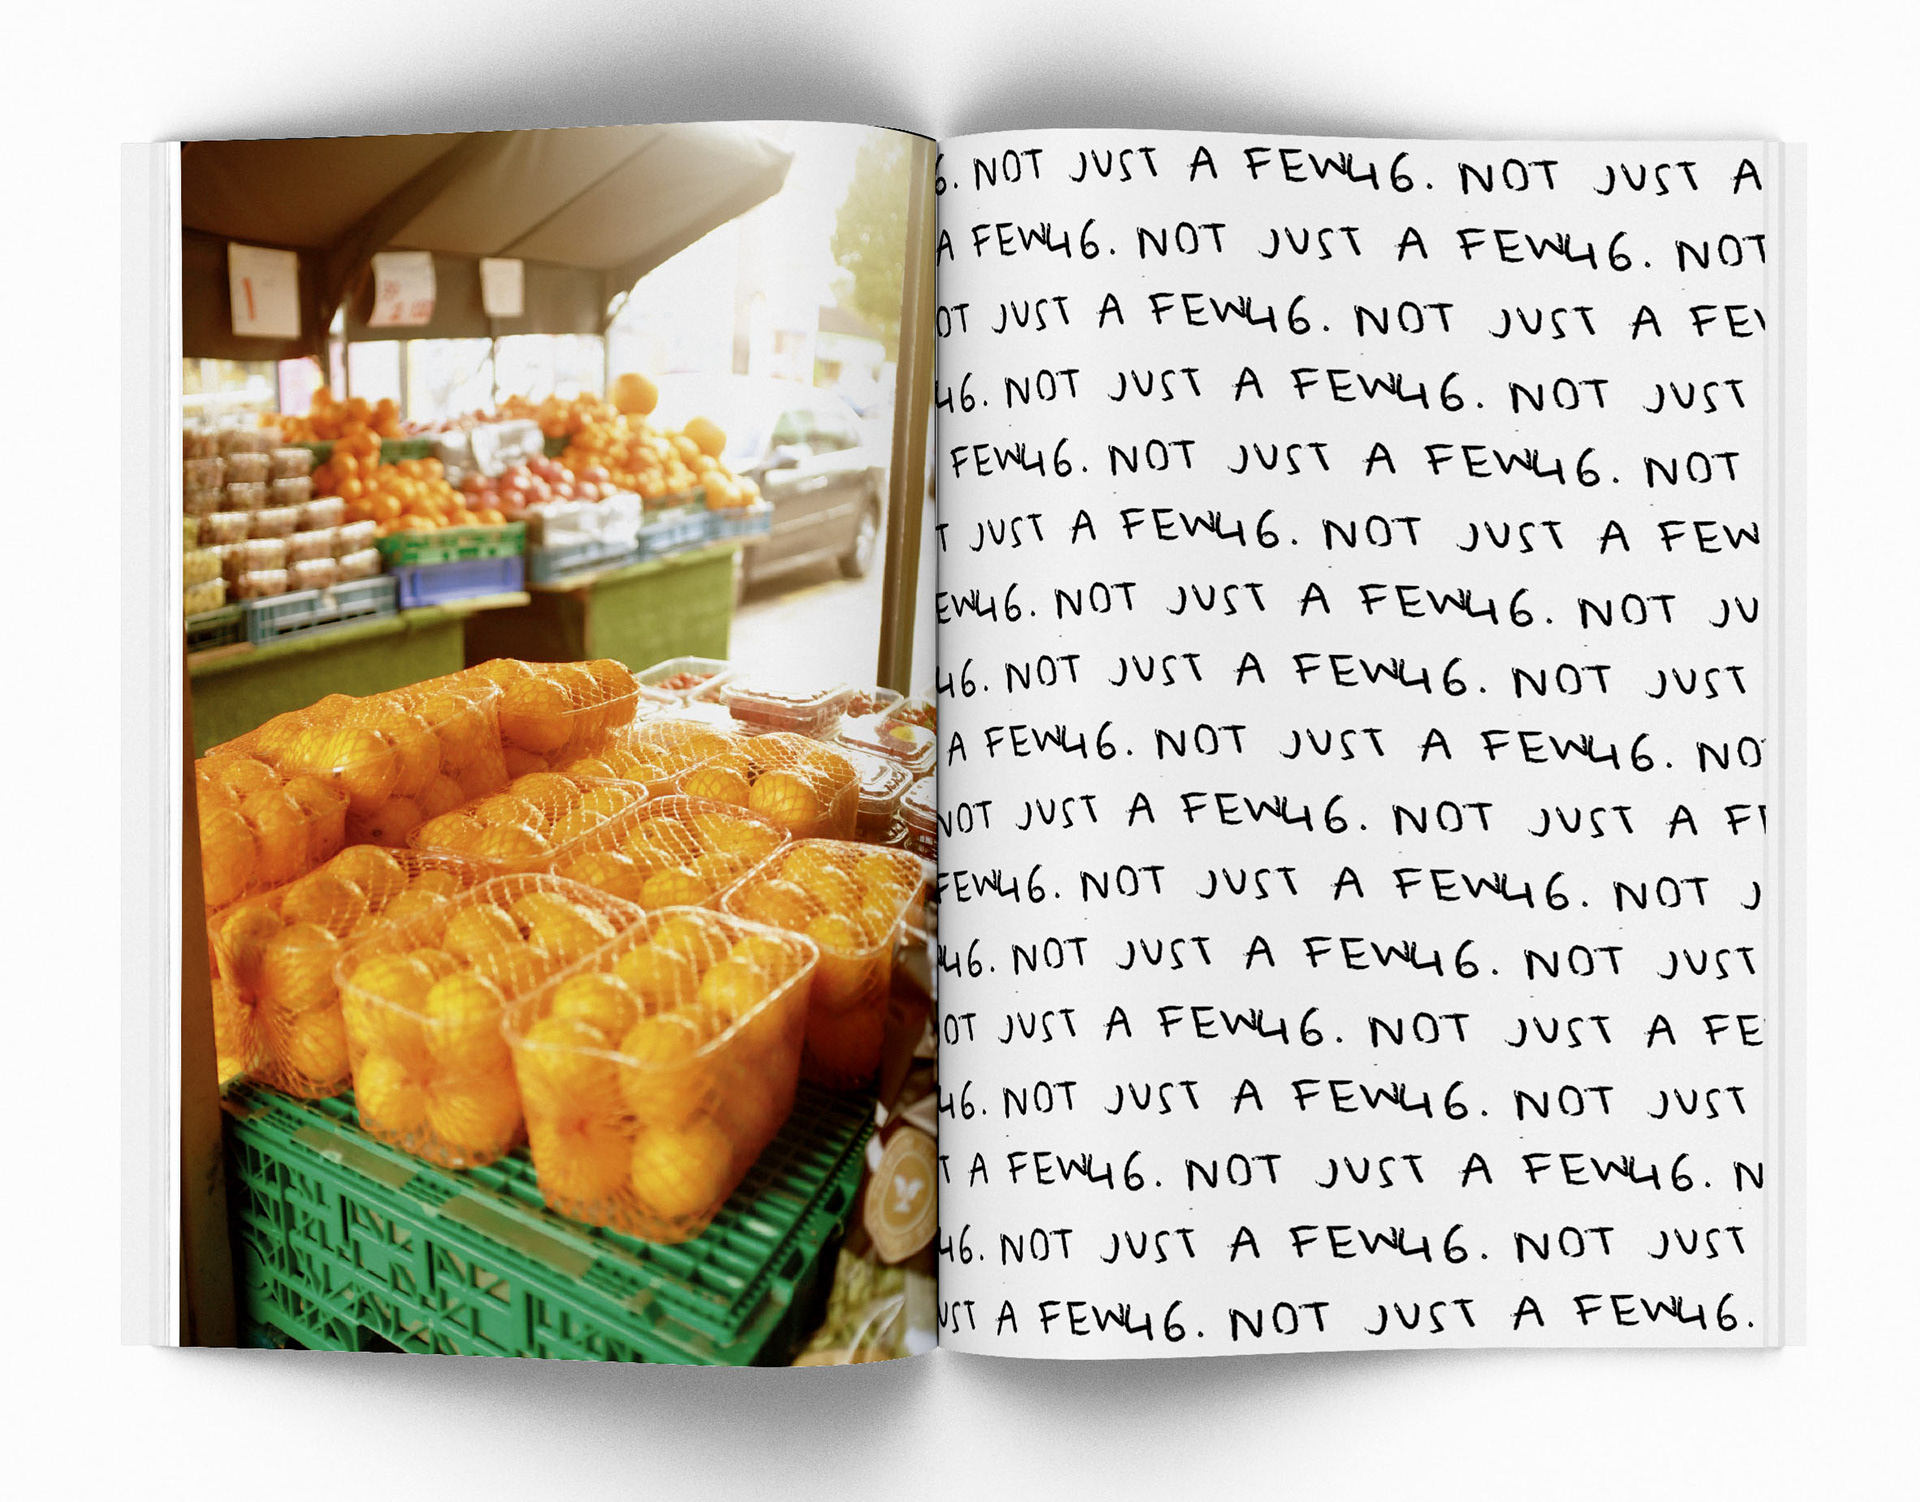 6. NOT JUST A FEW46. NOT JUST A
A FEW46. NOT JUST A FEW46. NOT
OT JUST A FEW46. NOT JUST A FE
46. NOT JUST A FEW46. NOT JUST
FEW46. NOT JUST A FEW46. NOT
T JUST A FEW46. NOT JUST A FEW
EW46. NOT JUST A FEW46. NOT JU
46. NOT JUST A FEW46. NOT JUST
A FEW46. NOT JUST A FEW46. NO
NOT JUST A FEW46. NOT JUST A F
FEW46. NOT JUST A FEW46. NOT J
46. NOT JUST A FEW46. NOT JUST
OT JUST A FEW46. NOT JUST A FE
46. NOT JUST A FEW46. NOT JUST
T A FEW46. NOT JUST A FEW46. N
46. NOT JUST A FEW46. NOT JUST
UST A FEW46. NOT JUST A FEW46.